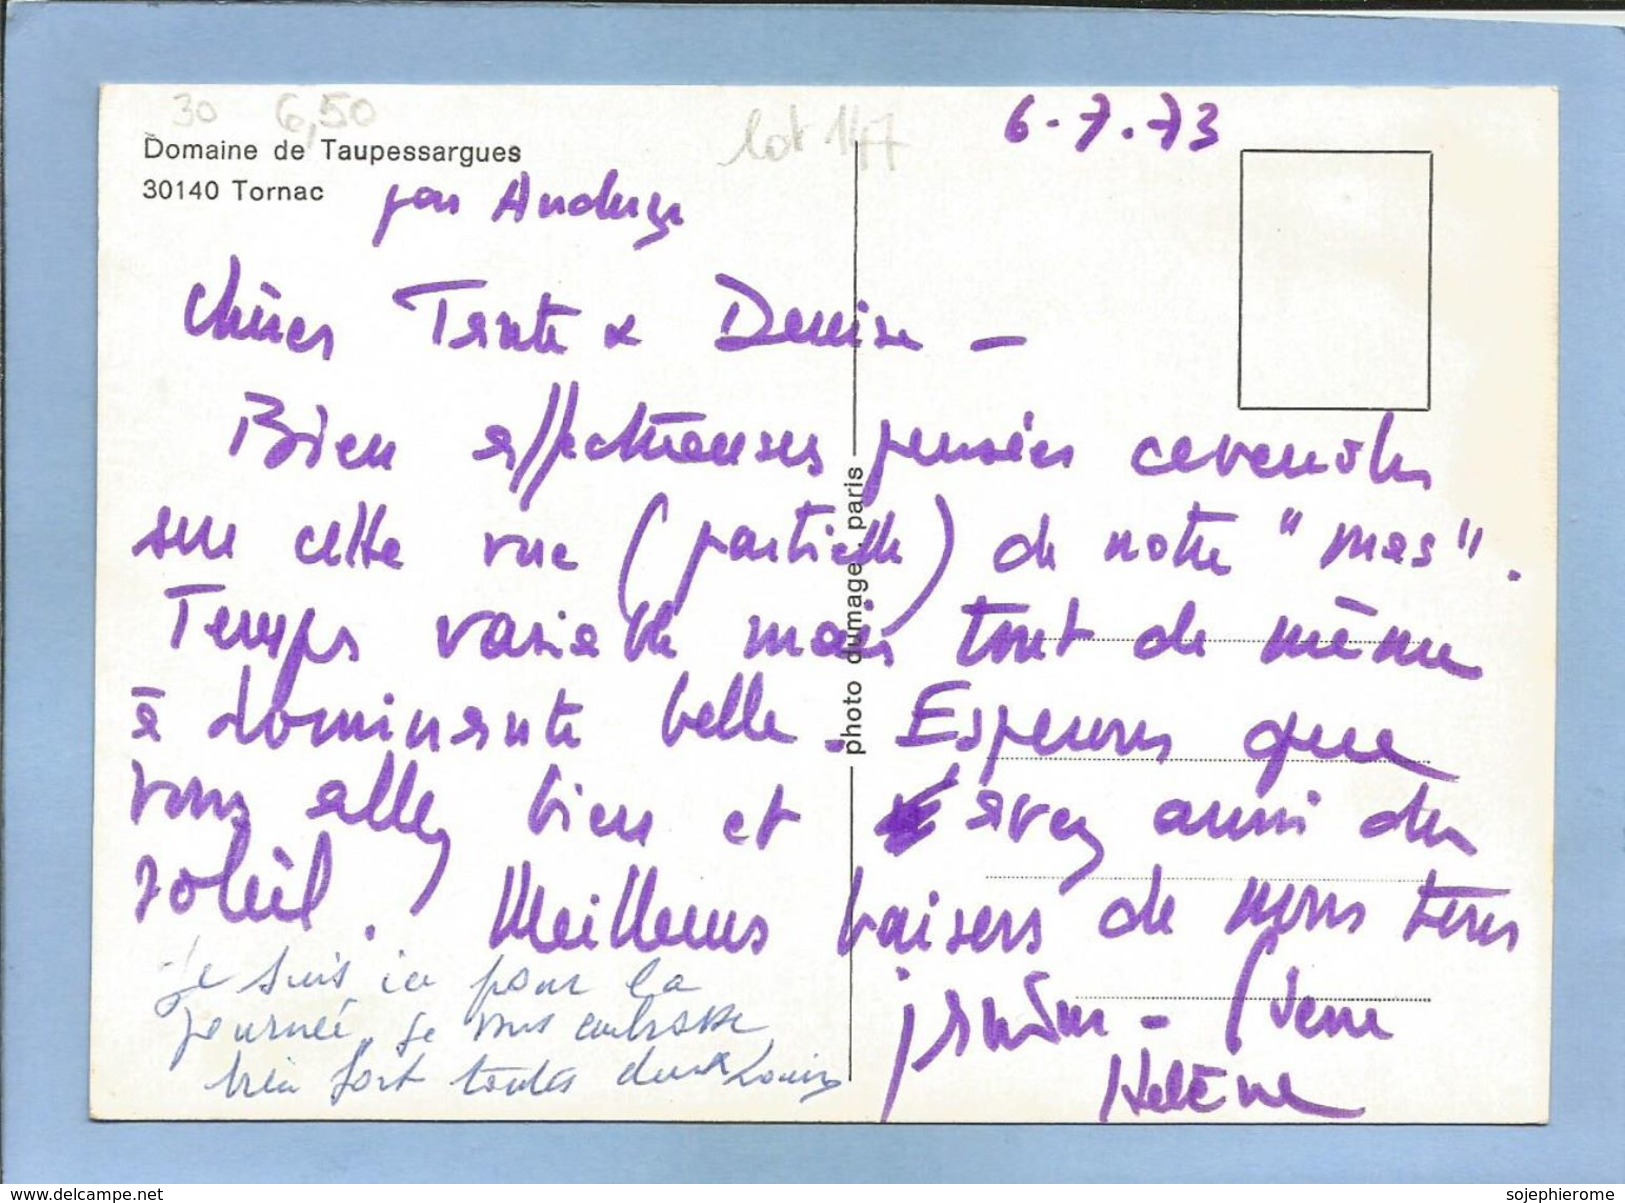 30 6,50
lot 147
6.7.73
Domaine de Taupessargues
30140 Tornac
par Anduze
Chères Tante & Denise -
Bien affectueuses pensées cevenoles
sur cette vue (partielle) de notre "mas".
Temps variable mais tout de même
à dominante belle. Esperons que
vous allez bien et avez aussi du
soleil. Meilleurs baisers de nous tous
Hélène
Je suis ici pour la
journée, je vous embrasse
bien fort toutes deux Louis
photo dumage. paris
www.delcampe.net
sojephierome